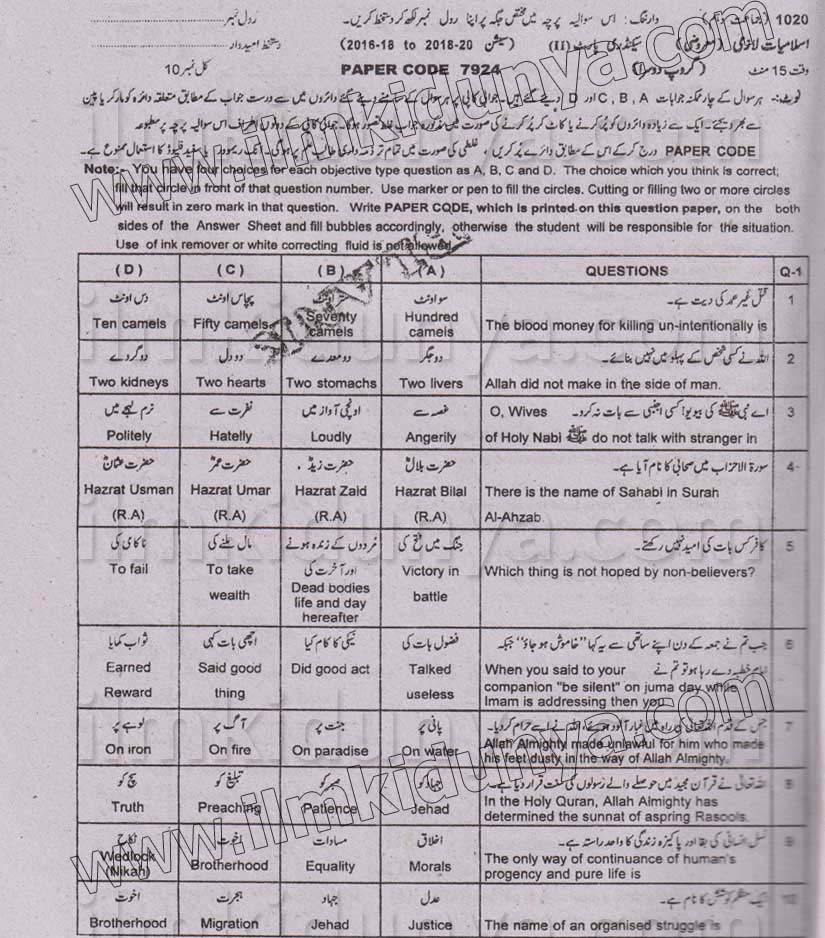 1020 (جماعت دہم) وارننگ: اس سوالیہ پرچہ میں مختص جگہ پر اپنا رول نمبر لکھ کر دستخط کریں۔ رول نمبر
اسلامیات لازمی (معروضی) سیکنڈری پارٹ (II) (سیشن 2016-18 to 2018-20) دستخط امیدوار
وقت 15 منٹ (گروپ دوسرا) PAPER CODE 7924 کل نمبر 10
نوٹ:- ہر سوال کے چار ممکنہ جوابات A, B, C اور D دیئے گئے ہیں۔ جوابی کاپی پر ہر سوال کے سامنے دیئے گئے دائروں میں سے درست جواب کے مطابق متعلقہ دائرہ کو مارکر یا پین
سے بھر دیجئے۔ ایک سے زیادہ دائروں کو پُر کرنے یا کاٹ کر پُر کرنے کی صورت میں مذکورہ جواب غلط تصور ہوگا۔ جوابی کاپی کے دونوں اطراف اس سوالیہ پرچہ پر مطبوعہ
PAPER CODE درج کر کے اس کے مطابق دائرے پُر کریں، غلطی کی صورت میں تمام تر ذمہ داری طالب علم پر ہوگی۔ انک ریموور یا سفید فلیوڈ کا استعمال ممنوع ہے۔
Note:- You have four choices for each objective type question as A, B, C and D. The choice which you think is correct;
fill that circle in front of that question number. Use marker or pen to fill the circles. Cutting or filling two or more circles
will result in zero mark in that question. Write PAPER CODE, which is printed on this question paper, on the both
sides of the Answer Sheet and fill bubbles accordingly, otherwise the student will be responsible for the situation.
Use of ink remover or white correcting fluid is not allowed.
(D) (C) (B) (A) QUESTIONS Q-1
دس اونٹ پچاس اونٹ ستر اونٹ سو اونٹ قتل غیر عمد کی دیت ہے۔ 1
Ten camels Fifty camels Seventy camels Hundred camels The blood money for killing un-intentionally is
دو گردے دو دل دو معدے دو جگر اللہ نے کسی شخص کے پہلو میں نہیں بنائے۔ 2
Two kidneys Two hearts Two stomachs Two livers Allah did not make in the side of man.
نرم لہجے میں نفرت سے اونچی آواز میں غصہ سے اے نبی ﷺ کی بیویو! کسی اجنبی سے بات نہ کرو۔ O, Wives 3
Politely Hatelly Loudly Angerily of Holy Nabi ﷺ do not talk with stranger in
حضرت عثمانؓ حضرت عمرؓ حضرت زیدؓ حضرت بلالؓ سورۃ الاحزاب میں صحابی کا نام آیا ہے۔ 4
Hazrat Usman Hazrat Umar Hazrat Zaid Hazrat Bilal There is the name of Sahabi in Surah
(R.A) (R.A) (R.A) (R.A) Al-Ahzab.
ناکامی کی مال ملنے کی مُردوں کے زندہ ہونے اور آخرت کی جنگ میں فتح کی کافر کس بات کی امید نہیں رکھتے۔ 5
To fail To take wealth Dead bodies life and day hereafter Victory in battle Which thing is not hoped by non-believers?
ثواب کمایا اچھی بات کہی نیکی کا کام کیا فضول بات کی جب تم نے جمعہ کے دن اپنے ساتھی سے یہ کہا "خاموش ہو جاؤ" جبکہ 6
امام خطبہ دے رہا ہو تو تم نے
Earned Reward Said good thing Did good act Talked useless When you said to your
companion "be silent" on juma day while
Imam is addressing then you
لوہے پر آگ پر جنت پر پانی پر جس کے قدم اللہ تعالیٰ کی راہ میں غبار آلود ہوئے، اللہ نے اسے حرام کر دیا۔ 7
On iron On fire On paradise On water Allah Almighty made unlawful for him who made
his feet dusty in the way of Allah Almighty.
سچ کو تبلیغ کو صبر کو جہاد کو اللہ تعالیٰ نے قرآن مجید میں حوصلے والے رسولوں کی سنت قرار دیا ہے۔ 8
Truth Preaching Patience Jehad In the Holy Quran, Allah Almighty has
determined the sunnat of aspring Rasools.
نکاح اخوت مساوات اخلاق نسل انسانی کی بقا اور پاکیزہ زندگی کا واحد راستہ ہے۔ 9
Wedlock (Nikah) Brotherhood Equality Morals The only way of continuance of human's
progency and pure life is
اخوت ہجرت جہاد عدل ایک منظم کوشش کا نام ہے۔ 10
Brotherhood Migration Jehad Justice The name of an organised struggle is
www.ilmkidunya.com
www.ilmkidunya.com
ilmkidunya.com